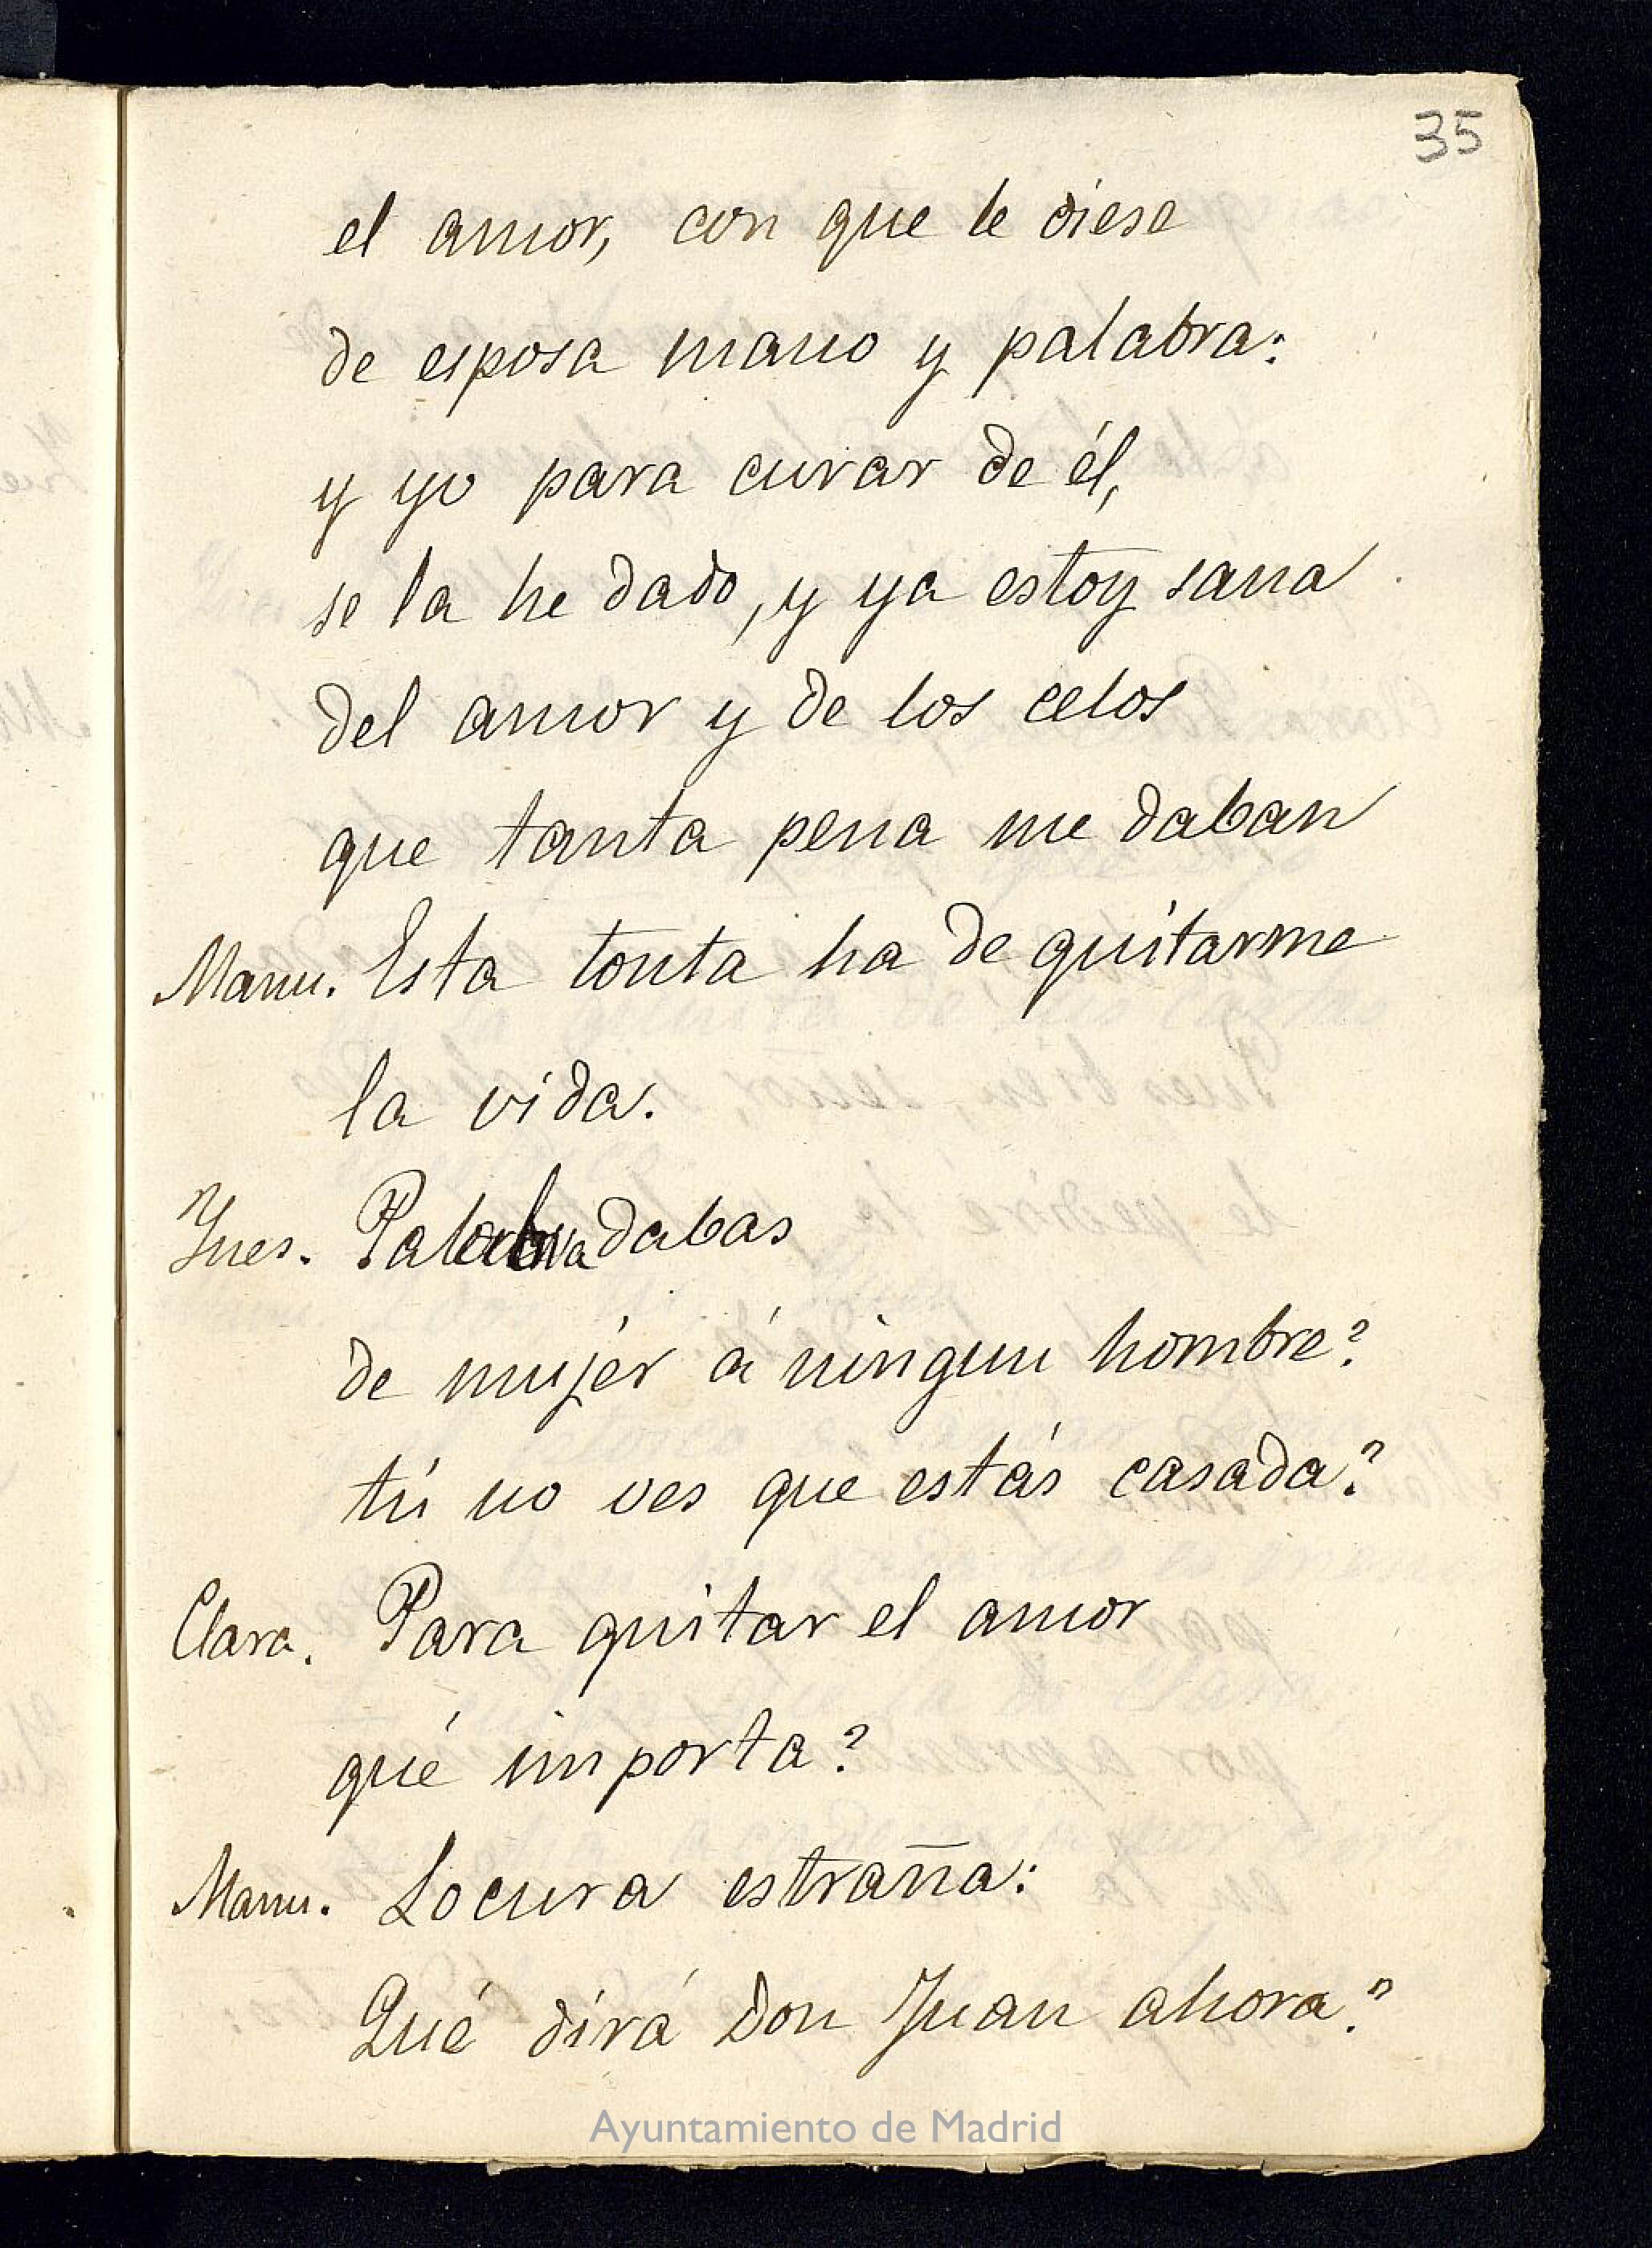 35
el amor, con que le diese
de esposa mano y palabra:
y yo para curar de él,
se la he dado, y ya estoy sana
del amor y de los celos
que tanta pena me daban
Manu. Esta tonta ha de quitarme
la vida.
Ynes. Palabra dabas
de mujer á ningun hombre?
tú no ves que estás casada?
Clara. Para quitar el amor
qué importa?
Manu. Locura estraña:
Qué dirá Don Juan ahora?
Ayuntamiento de Madrid